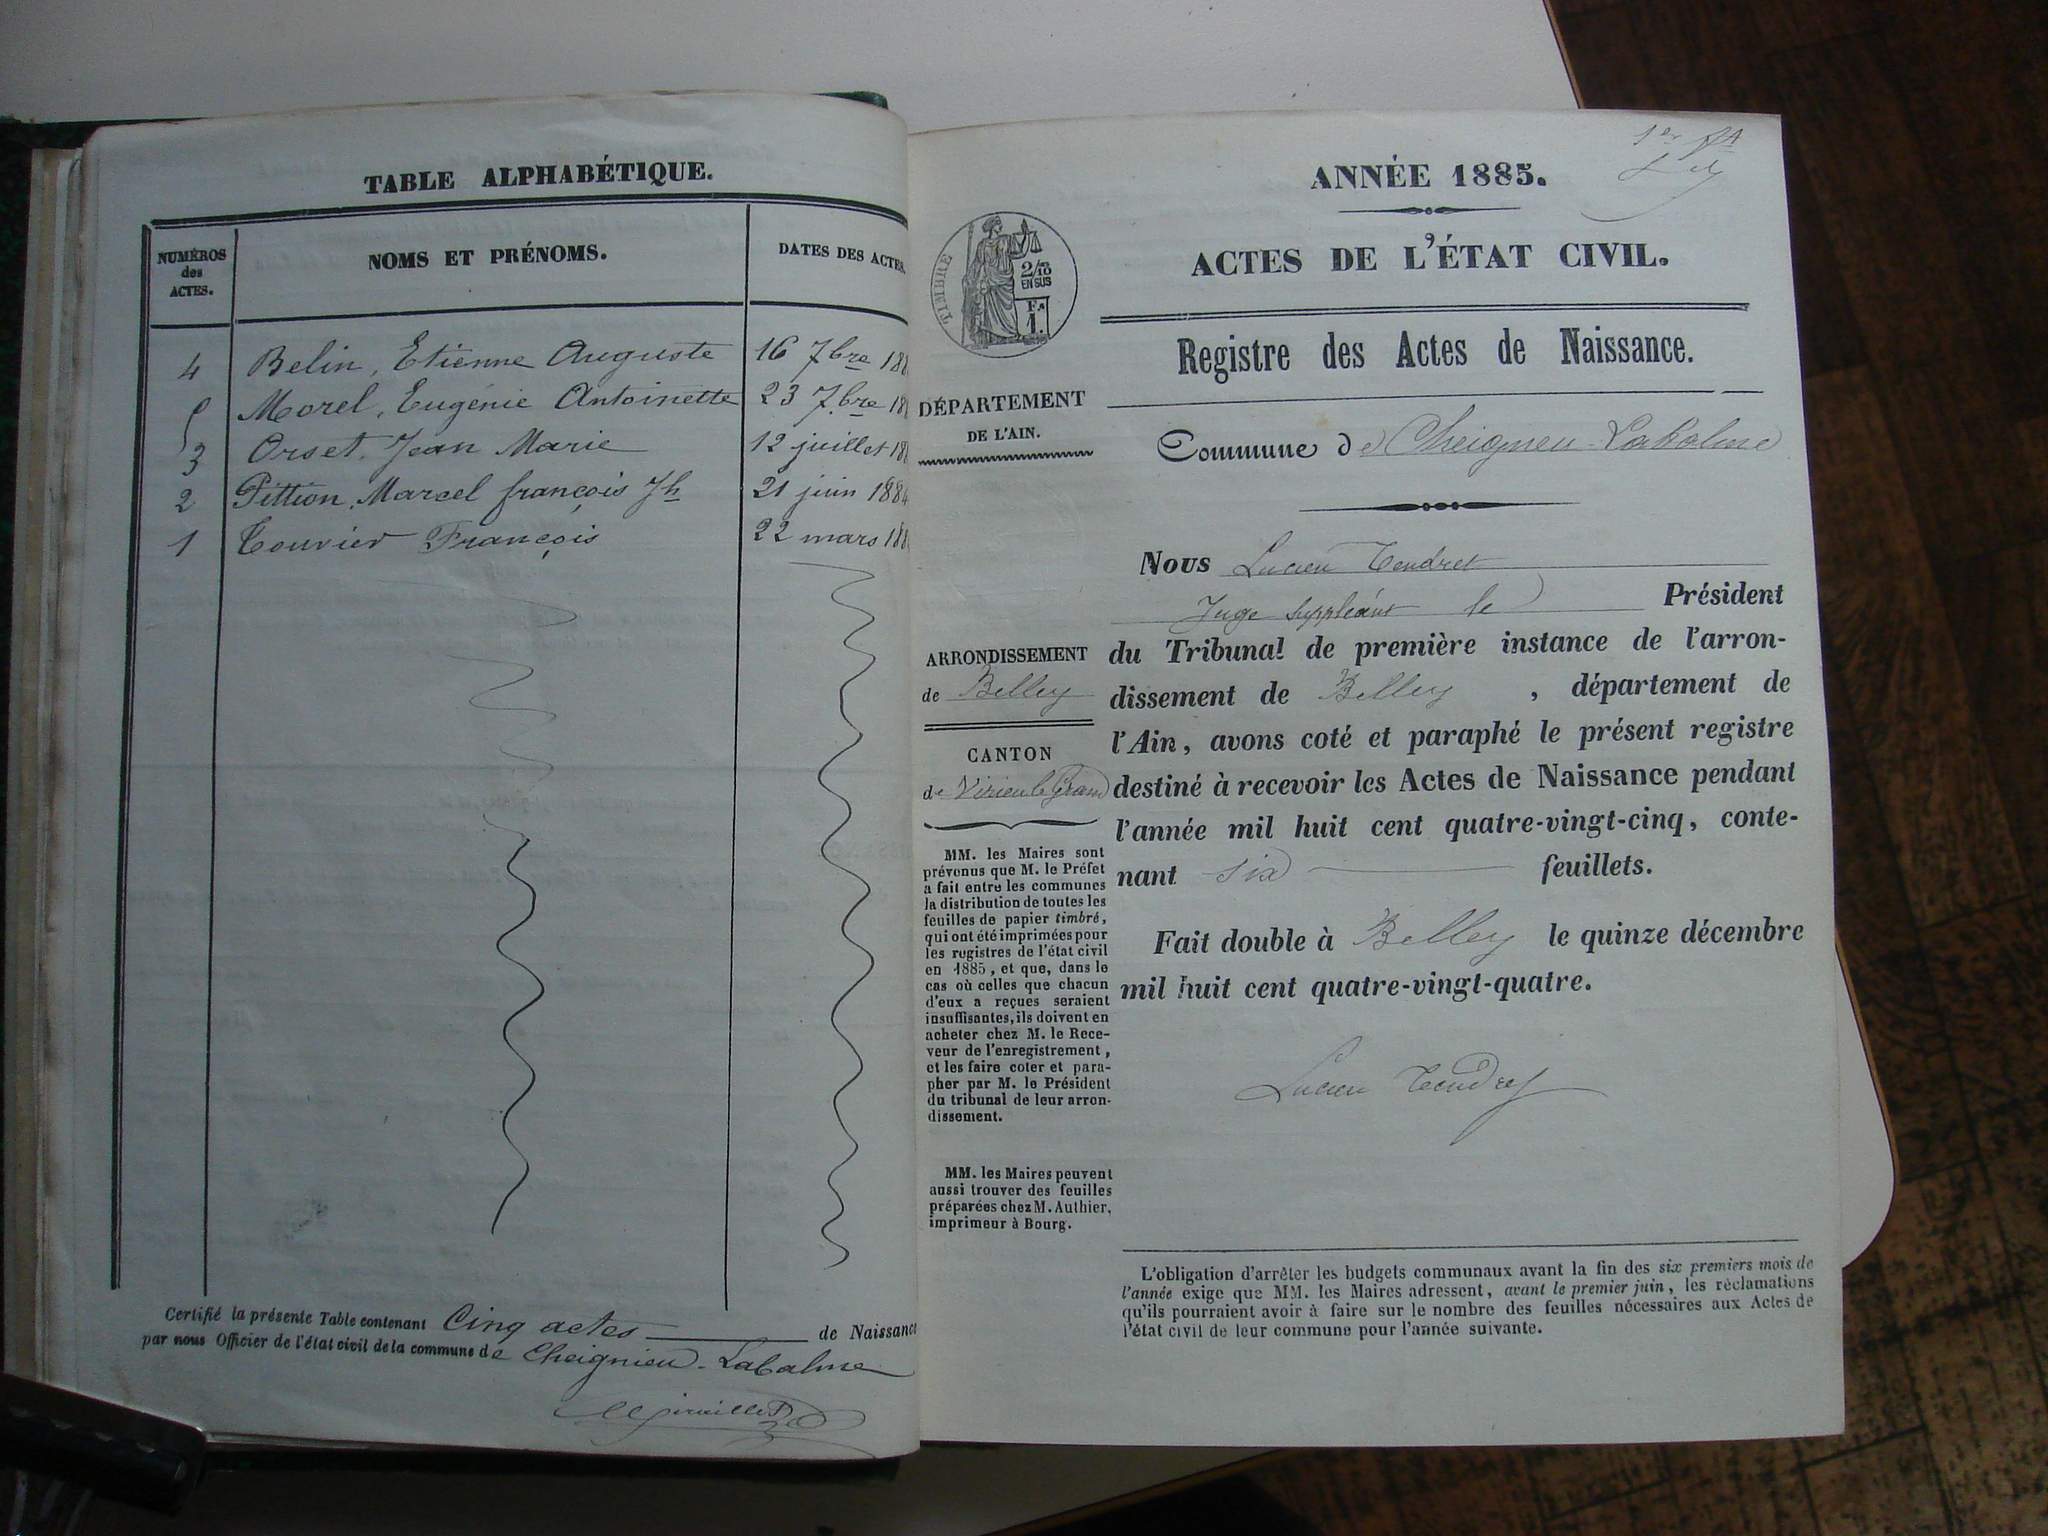 TABLE ALPHABÉTIQUE.
NUMÉROS
des
ACTES.
NOMS ET PRÉNOMS.
DATES DES ACTES.
4 Belin, Etienne Auguste 16 7bre 188
5 Morel, Eugénie Antoinette 23 7bre 18
3 Orset, Jean Marie 12 juillet 18
2 Pittion, Marcel françois Jh 21 juin 1884
1 Touvier François 22 mars 188
Certifié la présente Table contenant Cinq actes de Naissance
par nous Officier de l'état civil de la commune de Cheignieu-Labalme
1er
ANNÉE 1885.
ACTES DE L'ÉTAT CIVIL.
TIMBRE
2/10
EN SUS
1.
Registre des Actes de Naissance.
DÉPARTEMENT
DE L'AIN.
Commune de Cheignieu-Labalme
Nous Lucien Tendret
Juge suppléant le Président
du Tribunal de première instance de l'arron-
dissement de Belley, département de
l'Ain, avons coté et paraphé le présent registre
destiné à recevoir les Actes de Naissance pendant
l'année mil huit cent quatre-vingt-cinq, conte-
nant six feuillets.
Fait double à Belley le quinze décembre
mil huit cent quatre-vingt-quatre.
Lucien Tendret
ARRONDISSEMENT
de Belley
CANTON
de Virieu le Grand
MM. les Maires sont
prévenus que M. le Préfet
a fait entre les communes
la distribution de toutes les
feuilles de papier timbré,
qui ont été imprimées pour
les registres de l'état civil
en 1885, et que, dans le
cas où celles que chacun
d'eux a reçues seraient
insuffisantes, ils doivent en
acheter chez M. le Rece-
veur de l'enregistrement,
et les faire coter et para-
pher par M. le Président
du tribunal de leur arron-
dissement.
MM. les Maires peuvent
aussi trouver des feuilles
préparées chez M. Authier,
imprimeur à Bourg.
L'obligation d'arrêter les budgets communaux avant la fin des six premiers mois de
l'année exige que MM. les Maires adressent, avant le premier juin, les réclamations
qu'ils pourraient avoir à faire sur le nombre des feuilles nécessaires aux Actes de
l'état civil de leur commune pour l'année suivante.